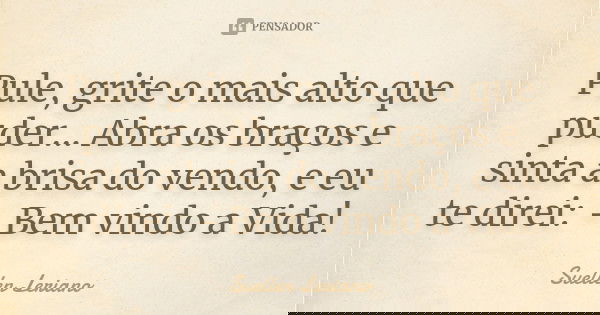 PENSADOR
Pule, grite o mais alto que
puder... Abra os braços e
sinta a brisa do vendo, e eu
te direi: - Bem vindo a Vida!
Suellen Leriano